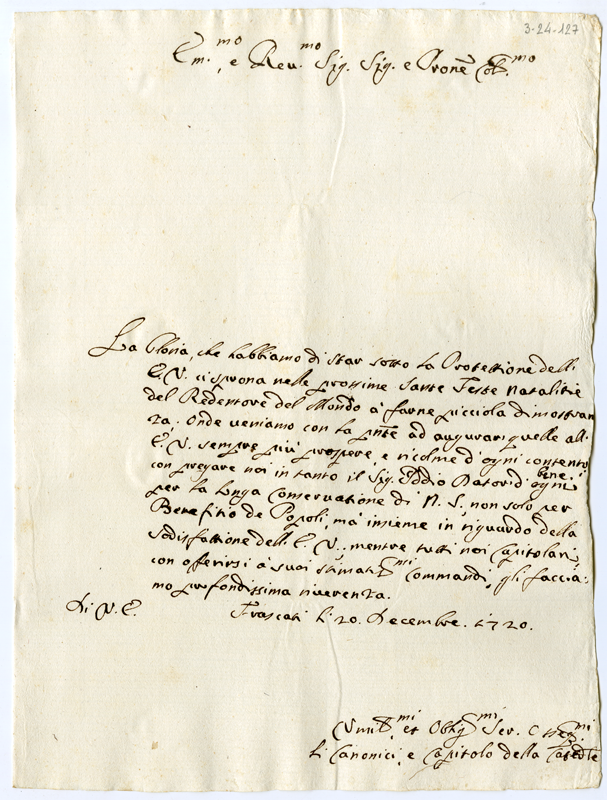 3-24-127
Em.mo, e Reu.mo Sig. Sig. e Prone Col.mo
La Gloria, che habbiamo di star sotto la Protettione dell'
E. V. ci sprona nelle prossime Sante Feste Natalitie
del Redentore del Mondo à farne picciola dimostran
za; Onde ueniamo con la pnte ad augurar quelle all'
E. V. sempre più prospere, e ricolme d'ogni contento,
con pregare noi in tanto il Sig. Iddio Dator d'ogni bene
per la longa Conseruatione di N. S. non solo per
Benefitio de Popoli, mà insieme in riguardo della
Sodisfattione dell'E. V., mentre tutti noi Capitolari
con offerirsi à suoi stimatis.mi Commandi, gli faccia:
mo profondissima riuerenza.
Di V. E.
Frascati li 20. Decembre. 1720.
Vmil.mi et Oblig.mi Ser.
Li Canonici, e Capitolo della Catedle